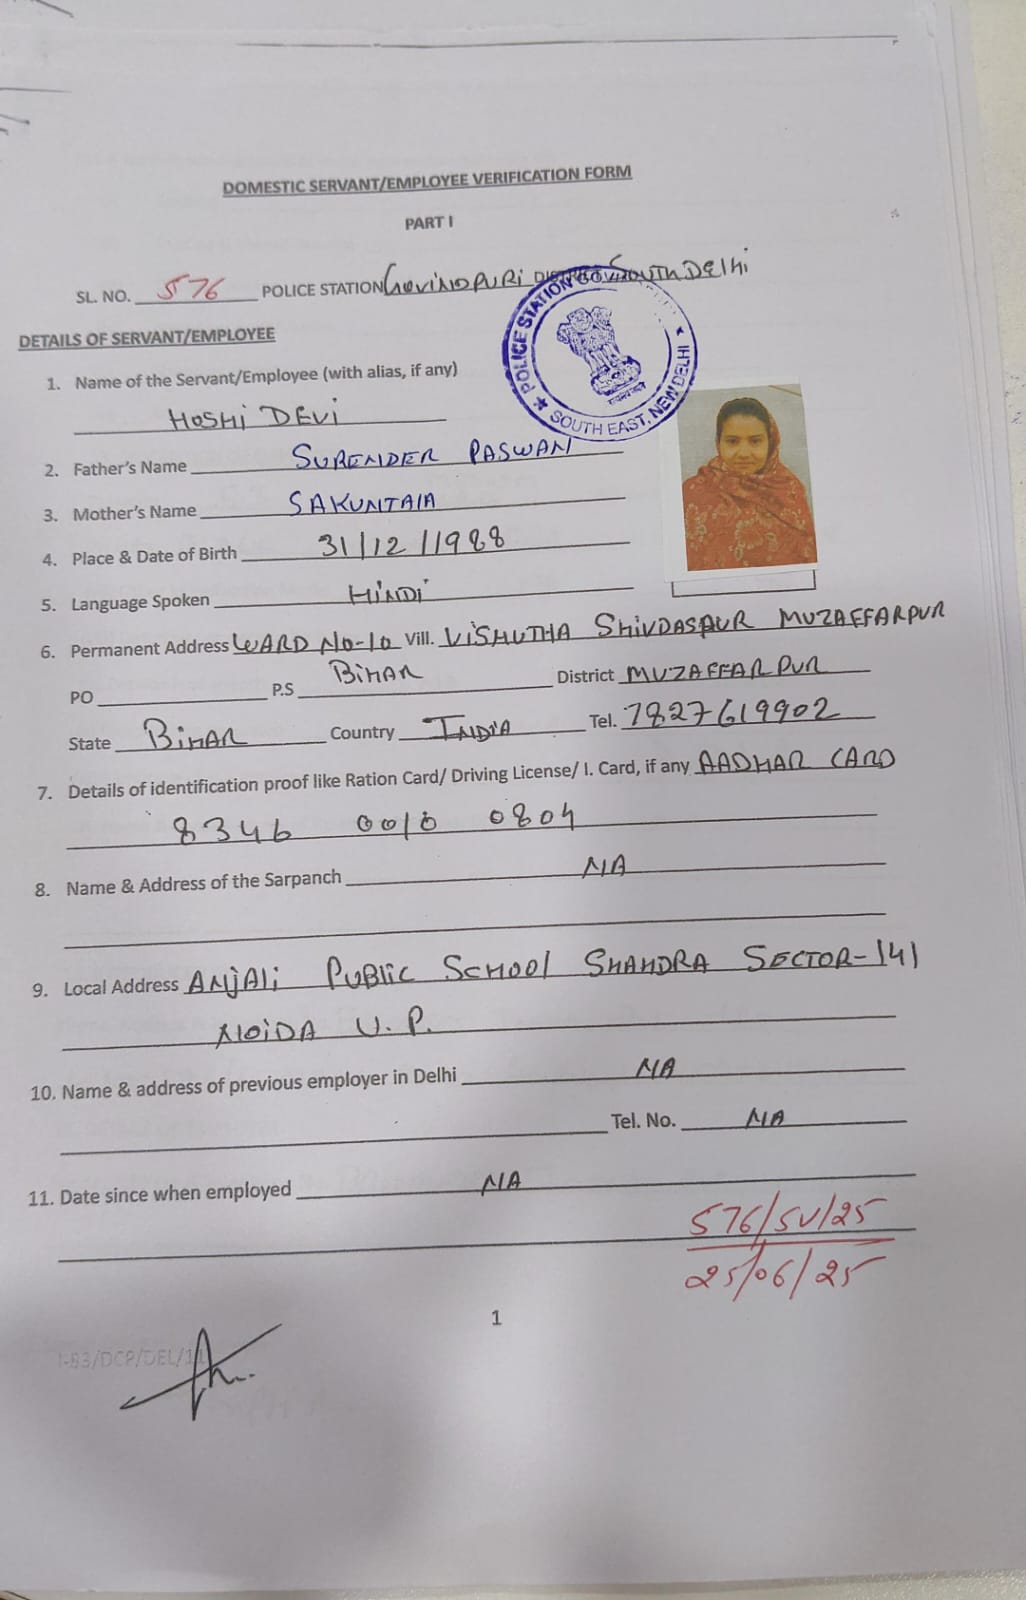 DOMESTIC SERVANT/EMPLOYEE VERIFICATION FORM
PART I
SL. NO. 576 POLICE STATION GOVINDPURI DISTT. SOUTH DELHI
POLICE STATION GOVIND
SOUTH EAST, NEW DELHI
DETAILS OF SERVANT/EMPLOYEE
1. Name of the Servant/Employee (with alias, if any)
HOSHI DEVI
2. Father's Name SURENDER PASWAN
3. Mother's Name SAKUNTAlA
4. Place & Date of Birth 31/12/1988
5. Language Spoken HINDI
6. Permanent Address WARD NO-10 Vill. VISHUTHA SHIVDASPUR MUZAFFARPUR
PO P.S BIHAR District MUZAFFARPUR
State BIHAR Country INDIA Tel. 7827619902
7. Details of identification proof like Ration Card/ Driving License/ I. Card, if any AADHAR CARD
8346 0010 0804
8. Name & Address of the Sarpanch NA
9. Local Address ANJALI PUBLIC SCHOOL SHAHDRA SECTOR-141
NOIDA U.P.
10. Name & address of previous employer in Delhi NA
Tel. No. NA
11. Date since when employed NA
576/SV/25
25/06/25
1